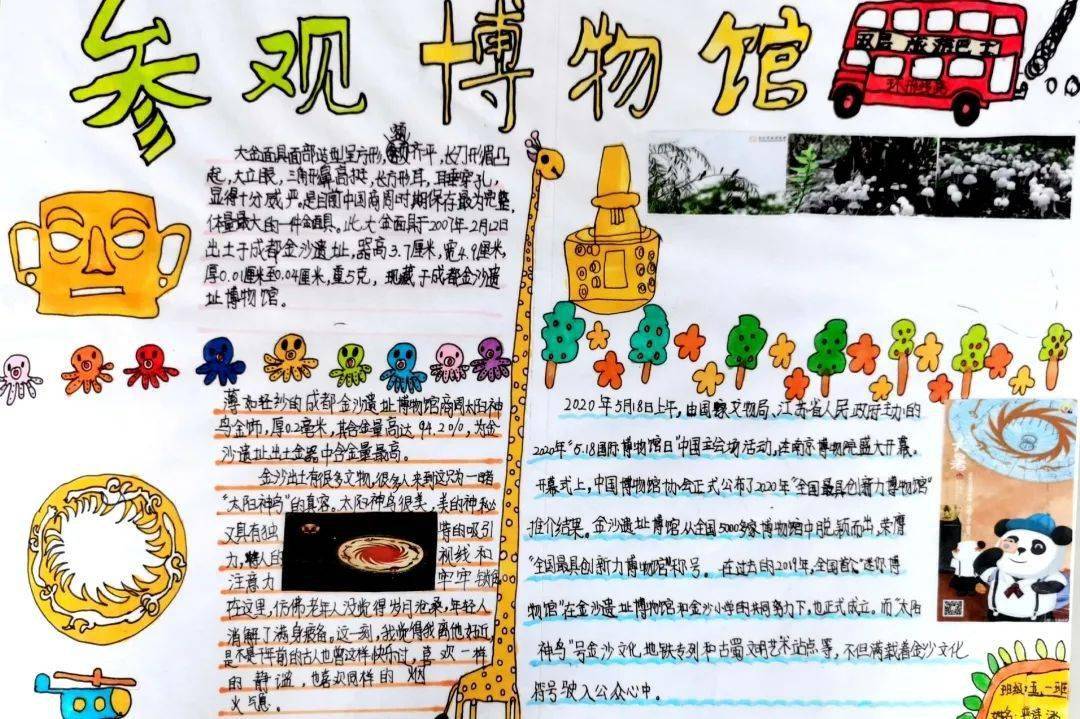 参观博物馆
双层 旅游巴士
大金面具面部造型呈方形，额齐平，长刀形眉凸
起，大立眼，三角形鼻高挺，长方形耳，耳垂穿孔，
显得十分威严。是目前中国商周时期保存最为完整，
体量最大的一件金面具。此大金面具于2007年2月12日
出土于成都金沙遗址，器高3.7厘米，宽4.9厘米，
厚0.01厘米至0.04厘米，重5克，现藏于成都金沙遗
址博物馆。
薄如轻纱的成都金沙遗址博物馆商周太阳神
鸟金饰，厚0.2毫米，其含金量高达94.2%，为金
沙遗址出土金器中含金量最高。
金沙出土有很多文物，很多人来到这只为一睹
“太阳神鸟”的真容。太阳神鸟很美，美的神秘
又具有独特的吸引
力，人的视线和
注意力牢牢锁
在这里，仿佛老年人没觉得岁月沧桑，年轻人
消解了满身疲备。这一刻，我觉得我离他好近，
是不是千年前的古人也曾这样快乐过，喜欢一样
的静谧，也喜欢同样的烟
火气息。
2020年5月18日上午，由国家文物局、江苏省人民政府主办的
2020年“5.18国际博物馆日”中国主会场活动，在南京博物院盛大开幕。
开幕式上，中国博物馆协会正式公布了2020年“全国最具创新力博物馆”
推介结果。金沙遗址博馆从全国5000多家博物馆中脱颖而出，荣膺
“全国最具创新力博物馆”称号。在过去的2019年，全国首个“迷你博
物馆”在金沙遗址博物馆和金沙小学的共同努力下，也正式成立。而“太阳
神鸟”号金沙文化地铁专列和古蜀文明艺术站点等，不但满载着金沙文化
符号驶入公众心中。
班级：五.一班